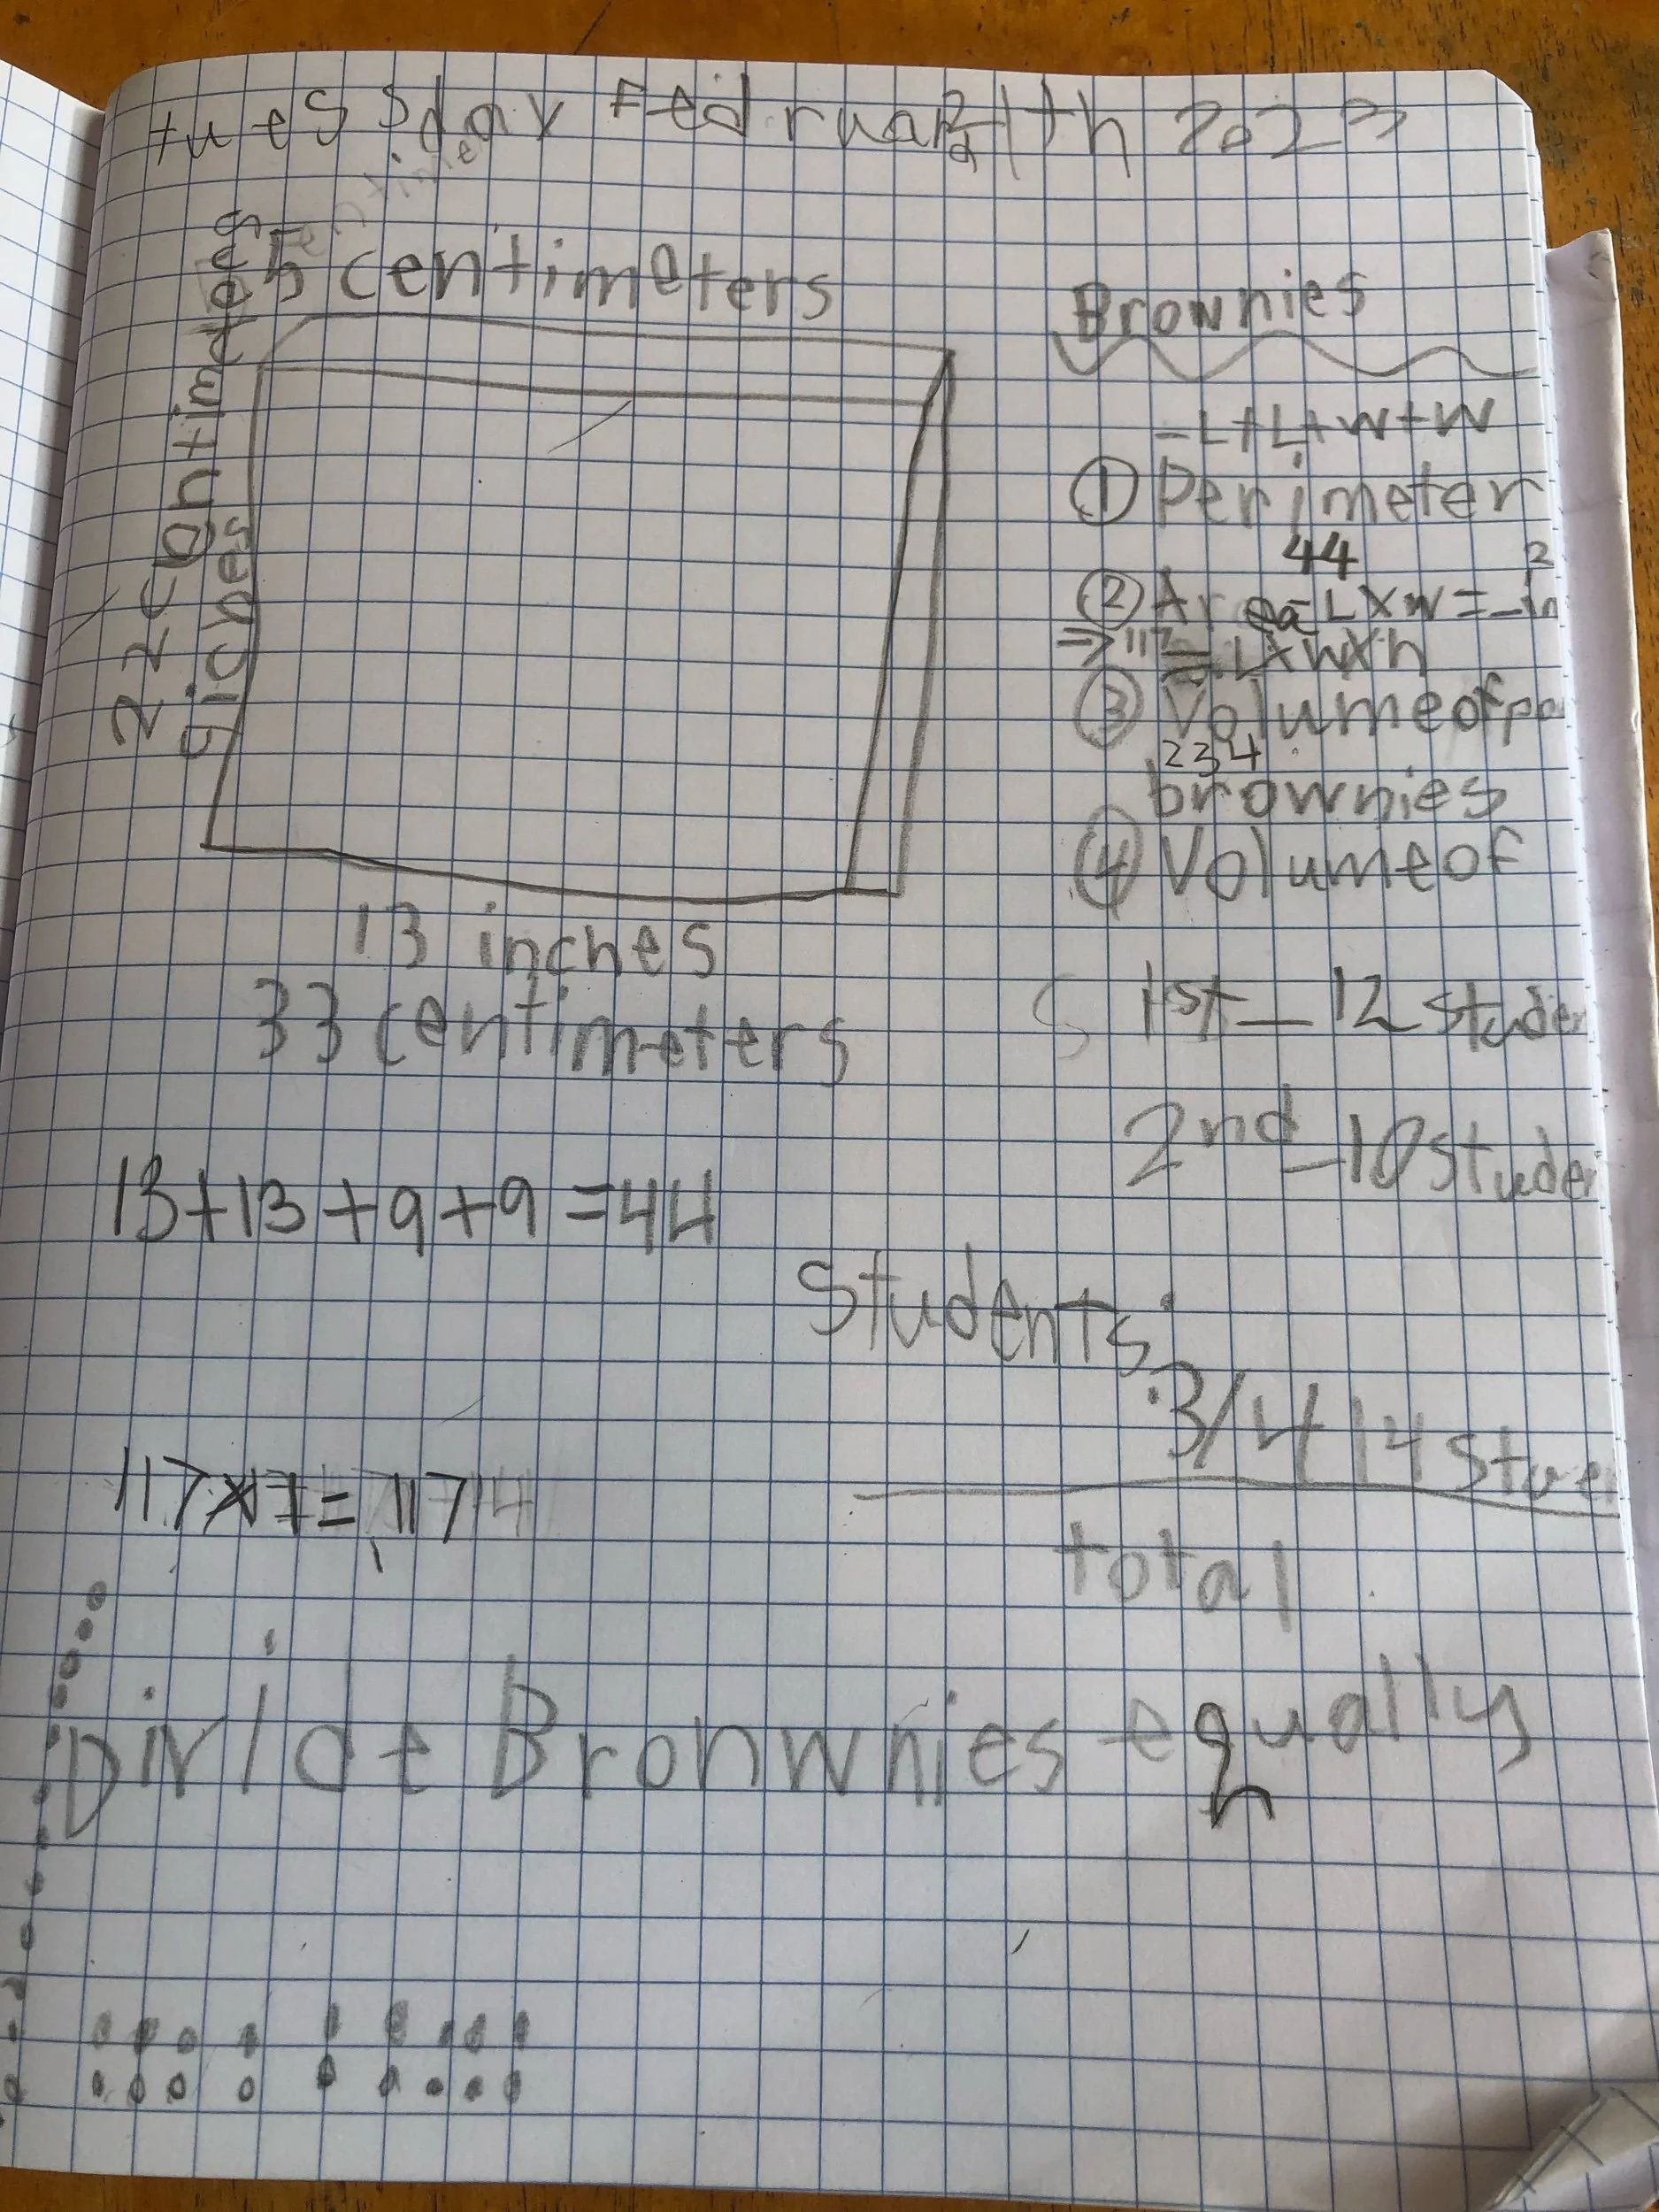 tuesday Fedruary 21th 2023
5 centimeters
22 centimeters
9 iches
13 inches
33 centimeters
Brownies
-L+L+W+W
① Perimeter
44
② Area L×W=_in²
⇒117 = L×W×h
③ Volume of pa
234
brownies
④ Volume of
1st_12 studen
2nd_10 studen
13+13+9+9=44
Students:
3/4 14 Stuen
117×1=117
total
Divide Bronwnies equally